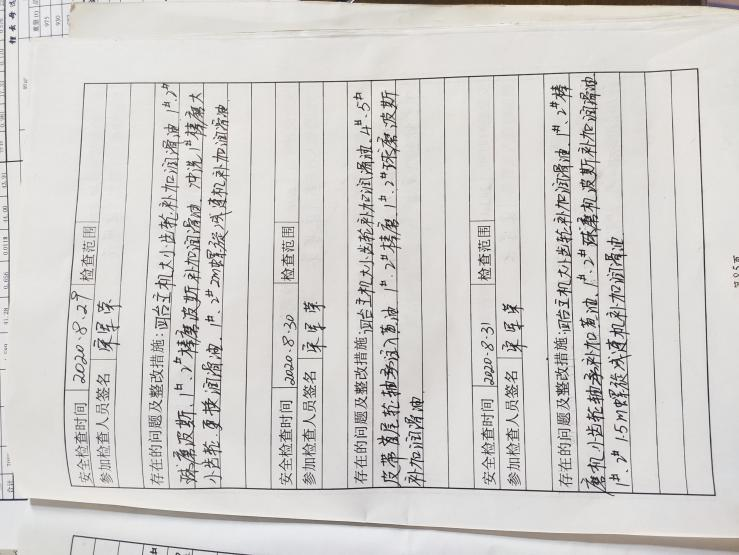 安全检查时间 2020.8.29 检查范围
参加检查人员签名 宋军荣
存在的问题及整改措施:四台主机大小齿轮补加润滑油、1#、2#
球磨波斯、1#、2#棒磨波斯补加润滑油、冲洗1#棒磨大
小齿轮、更换润滑油、1#、2#2m螺旋减速机补加润滑油
安全检查时间 2020.8.30 检查范围
参加检查人员签名 宋军荣
存在的问题及整改措施:四台主机大小齿轮补加润滑油、4#、5#
皮带首尾轮轴承注入黄油、1#、2#棒磨、1#、2#球磨波斯
补加润滑油
安全检查时间 2020.8.31 检查范围
参加检查人员签名 宋军荣
存在的问题及整改措施:四台主机大小齿轮补加润滑油、1#、2#棒
磨机小齿轮轴承补加黄油、1#、2#球磨机波斯补加润滑油
1#、2#1.5m螺旋减速机补加润滑油